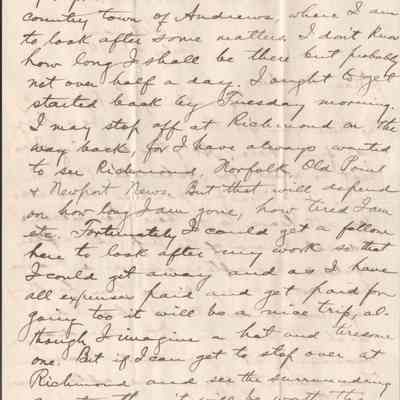 country town of Andrews, where I am
to look after some matters. I don't know
how long I shall be there but probably
not over half a day. I ought to get
started back by Tuesday morning.
I may stop off at Richmond on the
way back for I have always wanted
to see Richmond, Norfolk, Old Point
& Newport News. But that will depend
on how long I am gone, how tired I am
etc. Fortunately I could get a fellow
here to look after my work so that
I could get away and as I have
all expenses paid and get paid for
going too it will be a nice trip, al-
though I imagine a hot and tiresome
one. But if I can get to stop over at
Richmond and see the surrounding
will be worth the